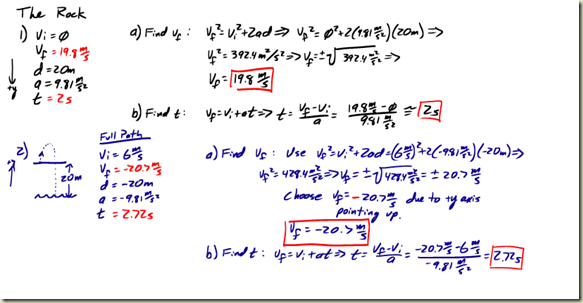 The Rock
1) Vi = Ø
Vf = 19.8 m/s
d = 20m
a = 9.81 m/s²
t = 2s
+y
a) Find Vf: Vf² = Vi² + 2ad => Vf² = Ø² + 2(9.81 m/s²)(20m) =>
Vf² = 392.4 m²/s² => Vf = ±√392.4 m²/s² =>
Vf = 19.8 m/s
b) Find t: Vf = Vi + at => t = (Vf - Vi)/a = (19.8 m/s - Ø)/(9.81 m/s²) ≅ 2s
2)
+y
20m
Full Path
Vi = 6 m/s
Vf = -20.7 m/s
d = -20m
a = -9.81 m/s²
t = 2.72s
a) Find Vf: Use Vf² = Vi² + 2ad = (6 m/s)² + 2(-9.81 m/s²)(-20m) =>
Vf² = 428.4 m²/s² => Vf = ±√428.4 m²/s² = ± 20.7 m/s
Choose Vf = -20.7 m/s due to +y axis
pointing up.
Vf = -20.7 m/s
b) Find t: Vf = Vi + at => t = (Vf - Vi)/a = (-20.7 m/s - 6 m/s)/(-9.81 m/s²) = 2.72s